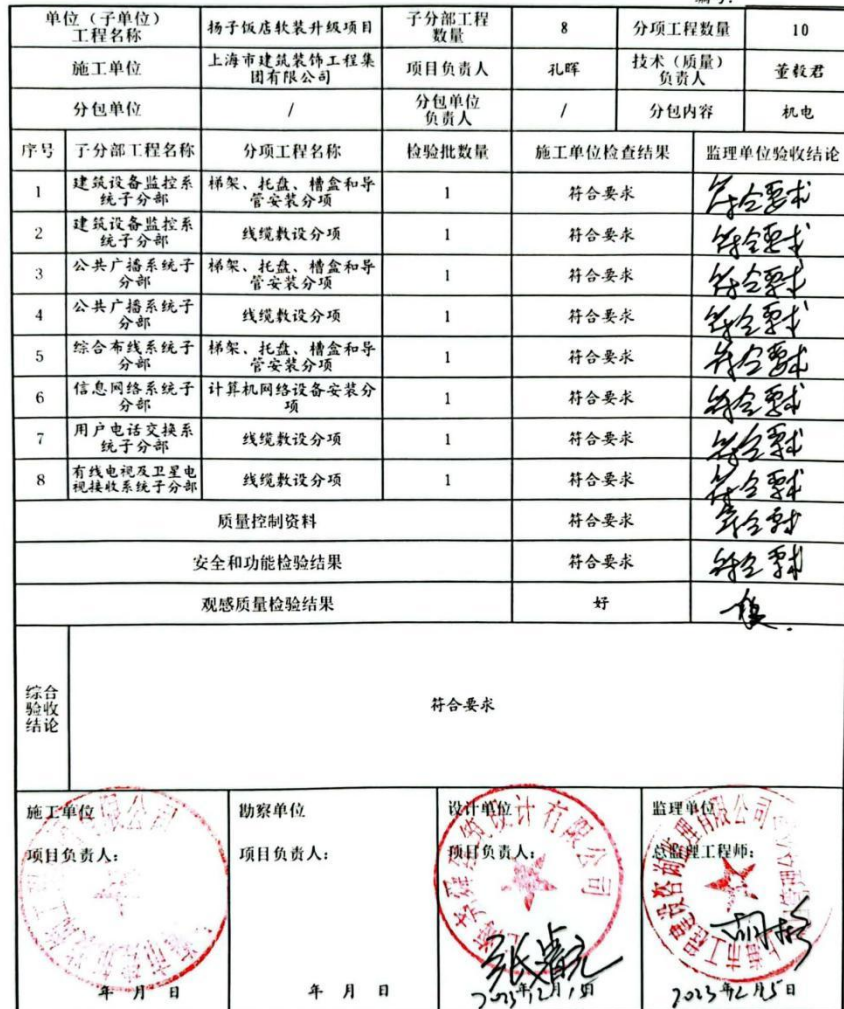 编号:
单位（子单位）
工程名称
扬子饭店软装升级项目
子分部工程
数量
8
分项工程数量
10
施工单位
上海市建筑装饰工程集
团有限公司
项目负责人
孔晖
技术（质量）
负责人
董毅君
分包单位
/
分包单位
负责人
/
分包内容
机电
序号
子分部工程名称
分项工程名称
检验批数量
施工单位检查结果
监理单位验收结论
1
建筑设备监控系
统子分部
梯架、托盘、槽盒和导
管安装分项
1
符合要求
符合要求
2
建筑设备监控系
统子分部
线缆敷设分项
1
符合要求
符合要求
3
公共广播系统子
分部
梯架、托盘、槽盒和导
管安装分项
1
符合要求
符合要求
4
公共广播系统子
分部
线缆敷设分项
1
符合要求
符合要求
5
综合布线系统子
分部
梯架、托盘、槽盒和导
管安装分项
1
符合要求
符合要求
6
信息网络系统子
分部
计算机网络设备安装分
项
1
符合要求
符合要求
7
用户电话交换系
统子分部
线缆敷设分项
1
符合要求
符合要求
8
有线电视及卫星电
视接收系统子分部
线缆敷设分项
1
符合要求
符合要求
质量控制资料
符合要求
符合要求
安全和功能检验结果
符合要求
符合要求
观感质量检验结果
好
综合
验收
结论
符合要求
施工单位
项目负责人:
年 月 日
勘察单位
项目负责人:
年 月 日
设计单位
项目负责人:
2023年12月15日
监理单位
总监理工程师:
2023年12月15日